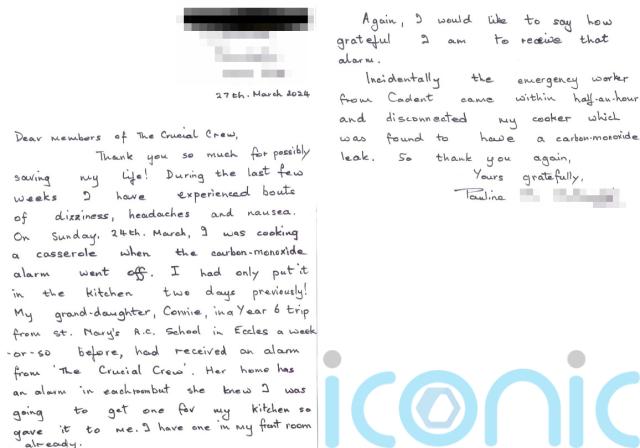 27th. March 2024
Dear members of The Crucial Crew,
Thank you so much for possibly
saving my life! During the last few
weeks I have experienced bouts
of dizziness, headaches and nausea.
On Sunday, 24th. March, I was cooking
a casserole when the carbon-monoxide
alarm went off. I had only put it
in the kitchen two days previously!
My grand-daughter, Connie, in a Year 6 trip
from St. Mary's R.C. School in Eccles a week
-or-so before, had received an alarm
from 'The Crucial Crew'. Her home has
an alarm in each room but she knew I was
going to get one for my kitchen so
gave it to me. I have one in my front room
already.
Again, I would like to say how
grateful I am to receive that
alarm.
Incidentally the emergency worker
from Cadent came within half-an-hour
and disconnected my cooker which
was found to have a carbon-monoxide
leak. So thank you again,
Yours gratefully,
Pauline
iconic